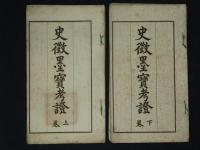 史徵墨寶考證
上卷
史徵墨寶考證
下卷